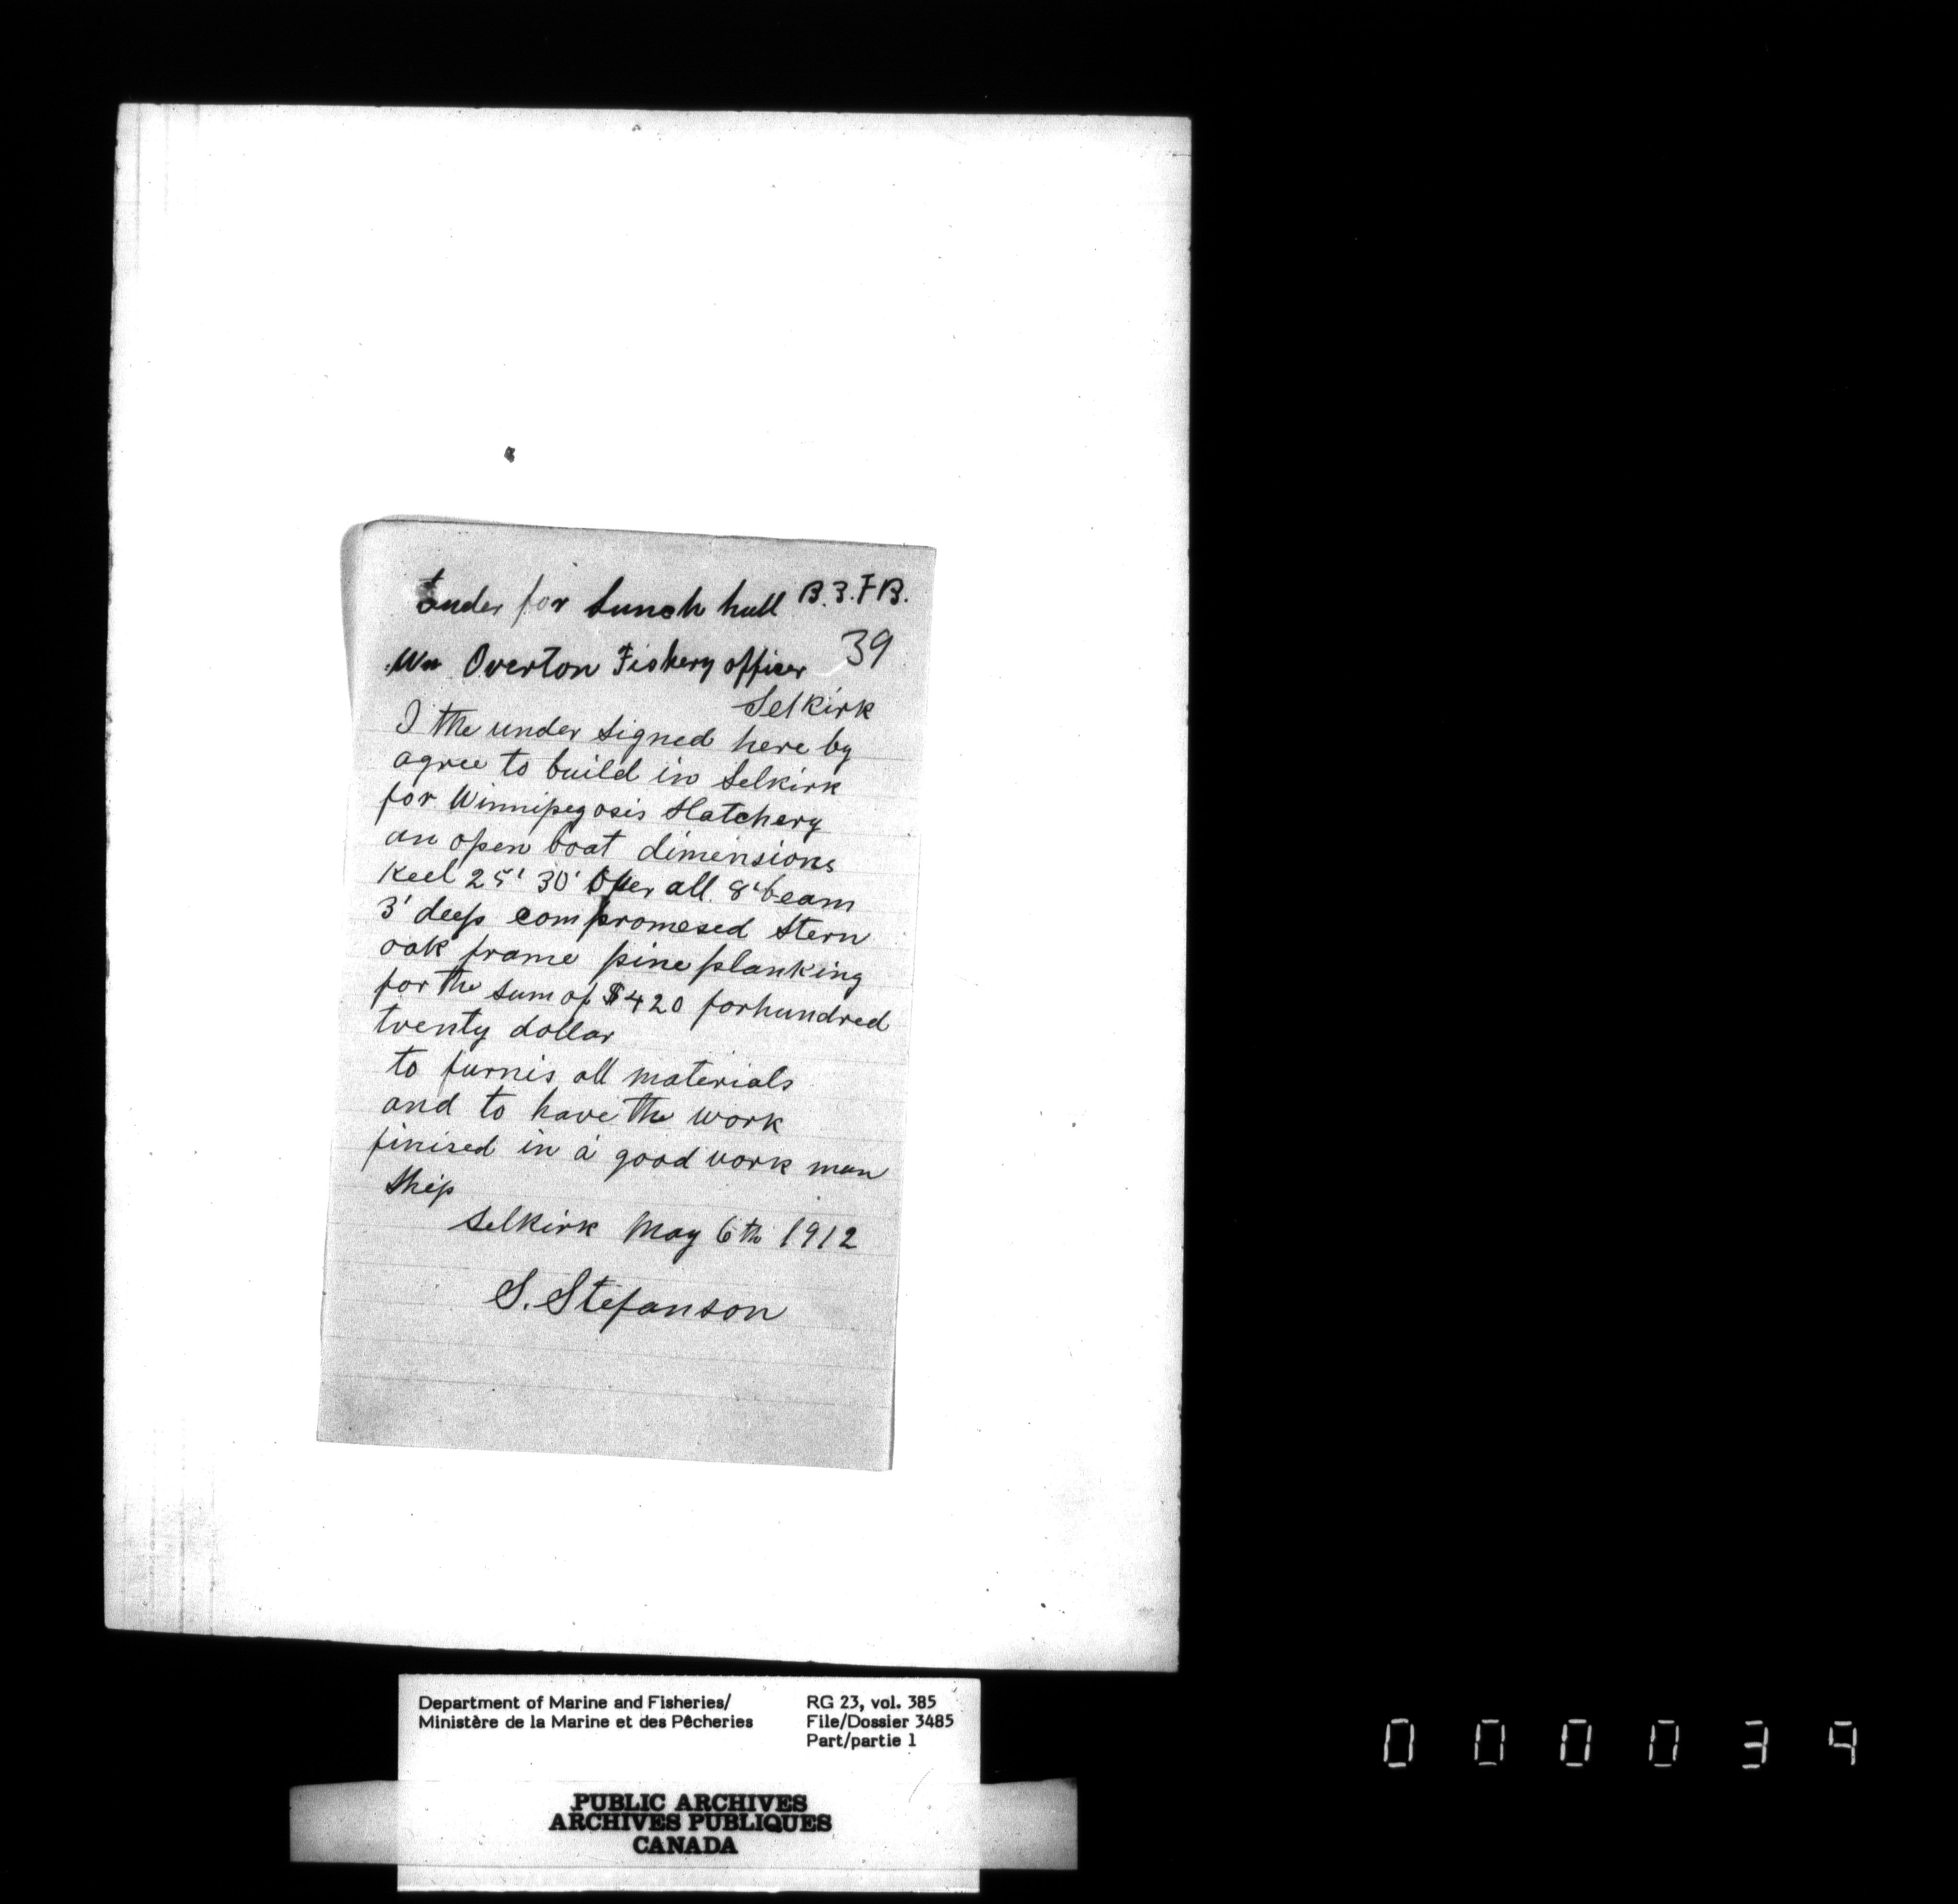 tender for Lunch hull B.3.F B.
39
Wm Overton Fishery officer
Selkirk
I the under signed here by
agree to build in Selkirk
for Winnipegosis Hatchery
an open boat dimensions
Keel 25' 30' Over all. 8' beam
3' deep compromesed Stern
oak frame pine planking
for the sum of $420 forhundred
tventy dollar
to furnis all materials
and to have the work
finised in a good vork man
ship
Selkirk May 6th 1912
S. Stefanson
Department of Marine and Fisheries/
Ministère de la Marine et des Pêcheries
RG 23, vol. 385
File/Dossier 3485
Part/partie 1
PUBLIC ARCHIVES
ARCHIVES PUBLIQUES
CANADA
000039